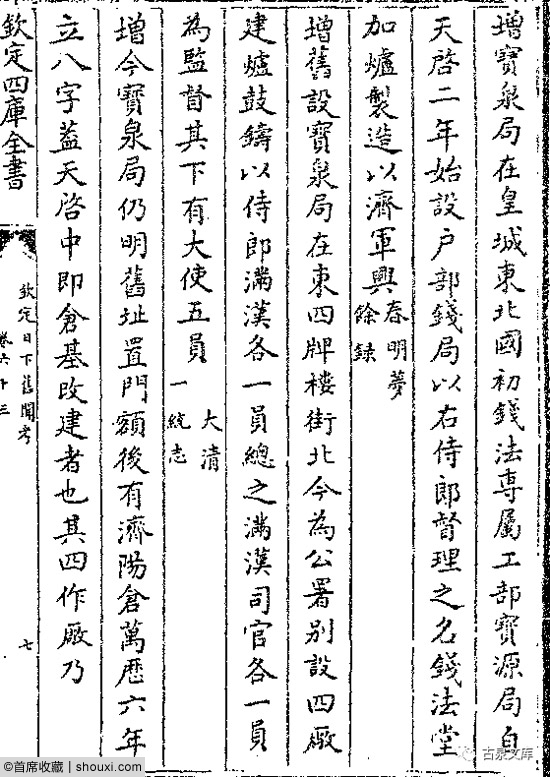 增寳泉局在皇城東北國初錢法専屬工部寳源局自
天啓二年始設户部錢局以右侍郎督理之名錢法堂
加爐製造以濟軍興春明夢
餘録
增舊設寳泉局在東四牌樓街北今為公署别設四廠
建爐鼓鑄以侍郎滿漢各一員總之滿漢司官各一員
為監督其下有大使五員大清
一統志
增今寳泉局仍明舊址置門額後有濟陽倉萬厯六年
立八字葢天啓中即倉基改建者也其四作廠乃
欽定四庫全書
欽定日下舊聞考
卷六十三
七
古泉文库
©首席收藏 | shouxi.com